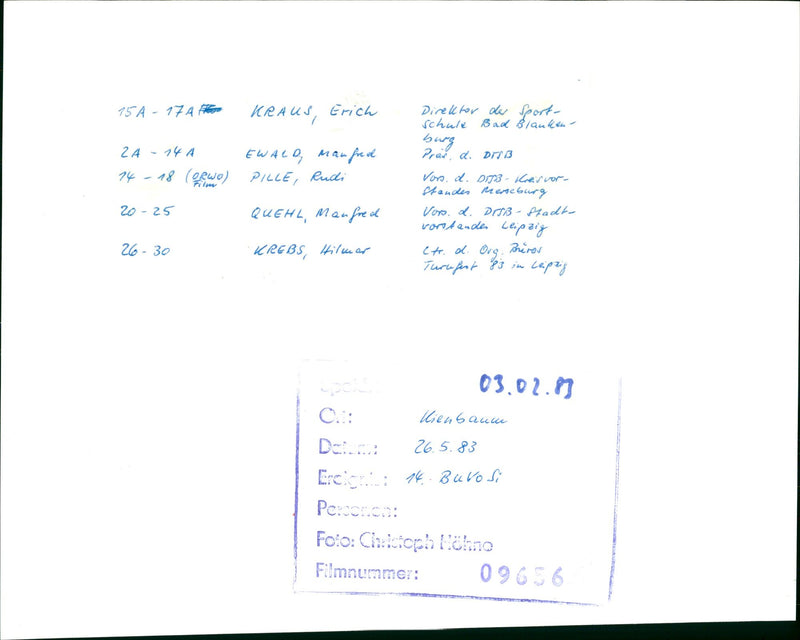 15A - 17A KRAUS, Erich Direktor der Sport-
schule Bad Blanken-
burg
2A - 14A EWALD, Manfred Präs. d. DTSB
14 - 18 (ORWO Film) PILLE, Rudi Vors. d. DTSB-Kreisvor-
standes Merseburg
20 - 25 QUEHL, Manfred Vors. d. DTSB-Stadt-
vorstandes Leipzig
26 - 30 KREBS, Hilmar Ltr. d. Org. Büros
Turnfest 83 in Leipzig
03.02.83
Ort: Kienbaum
Datum: 26.5.83
Ereignis: 14. BuVoSi
Personen:
Foto: Christoph Höhne
Filmnummer: 09656